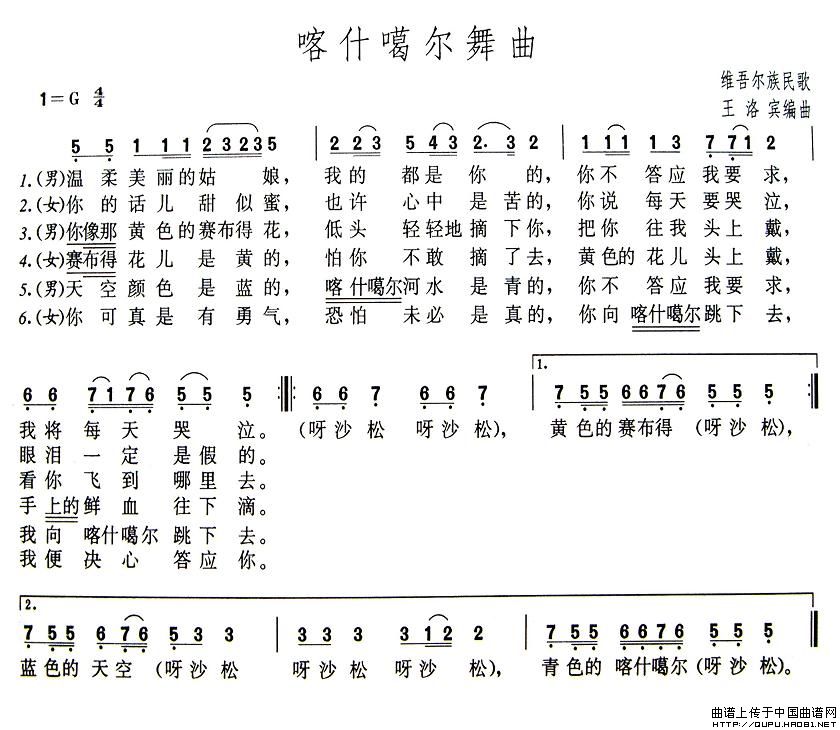 喀什噶尔舞曲
维吾尔族民歌
1=G 4/4
王洛宾编曲
5 5 1 1 1 2 3 2 3 5 2 2 3 5 2 3 2· 3 2 1 1 1 1 1 3 7 7 1 2
1.(男)温柔美丽的姑娘，我的都是你的，你不答应我要求，
2.(女)你的话儿甜似蜜，也许心中是苦的，你说每天要哭泣，
3.(男)你像那黄色的赛布得花，低头轻轻地摘下你，把你往我头上戴，
4.(女)赛布得花儿是黄的，怕你不敢摘了去，黄色的花儿头上戴，
5.(男)天空颜色是蓝的，喀什噶尔河水是青的，你不答应我要求，
6.(女)你可真是有勇气，恐怕未必是真的，你向喀什噶尔跳下去，
1.
6 6 7 1 7 6 5 5 5 6 6 7 6 6 7 7 5 5 6 6 7 6 5 5 5
我将每天哭泣。(呀沙松呀沙松)，黄色的赛布得(呀沙松)，
眼泪一定是假的。
看你飞到哪里去。
手上的鲜血往下滴。
我向喀什噶尔跳下去。
我便决心答应你。
2.
7 5 5 6 7 6 5 3 3 3 3 3 3 1 2 2 7 5 5 6 6 7 6 5 5 5
蓝色的天空(呀沙松呀沙松呀沙松)，青色的喀什噶尔(呀沙松)。
曲谱上传于中国曲谱网
HTTP://QUPU.HAO81.NET